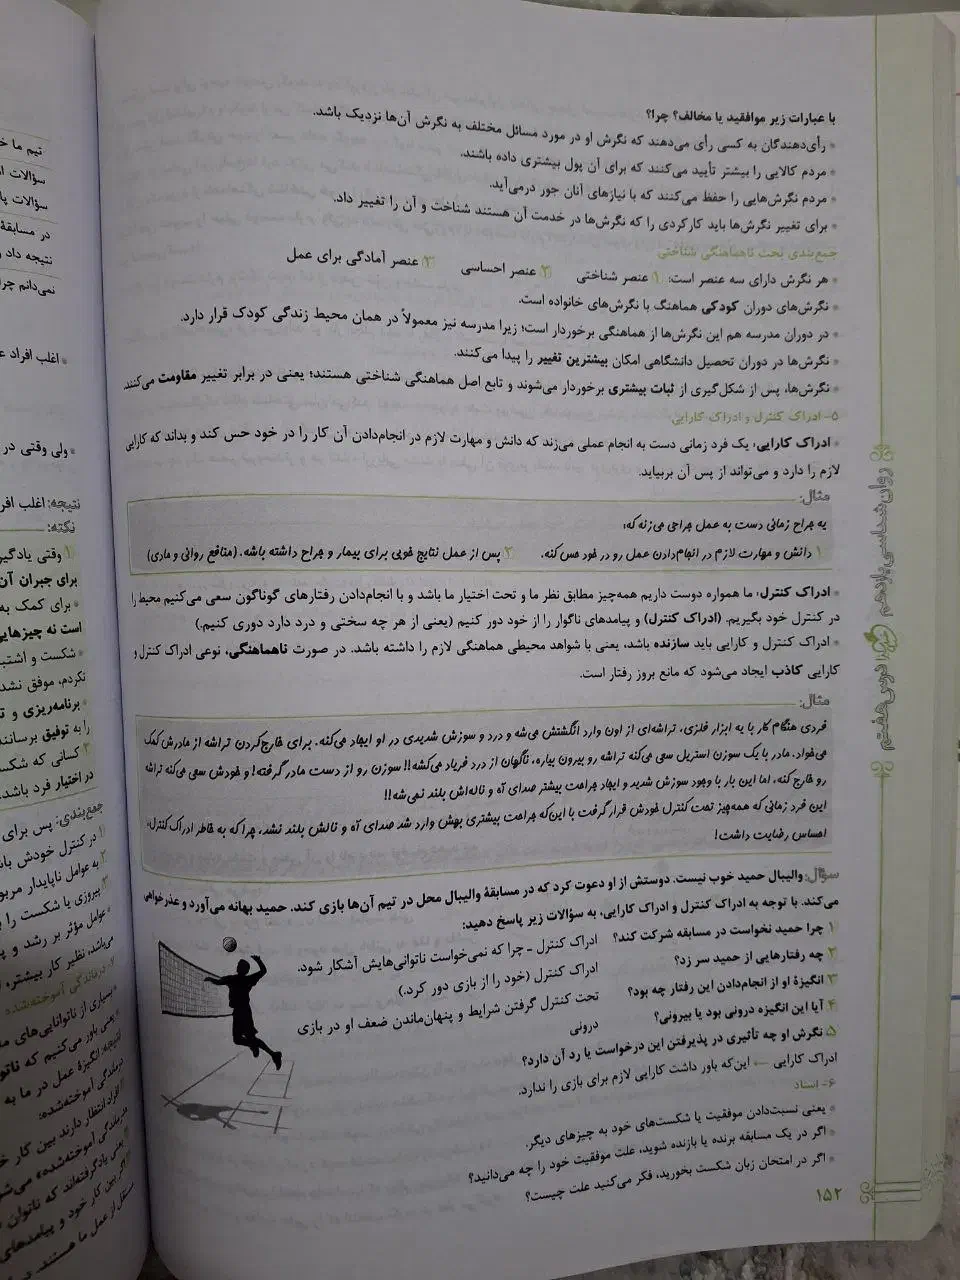 با عبارات زیر موافقید یا مخالف؟ چرا؟
• رأی‌دهندگان به کسی رأی می‌دهند که نگرش او در مورد مسائل مختلف به نگرش آن‌ها نزدیک باشد.
• مردم کالایی را بیشتر تأیید می‌کنند که برای آن پول بیشتری داده باشند.
• مردم نگرش‌هایی را حفظ می‌کنند که با نیازهای آنان جور درمی‌آید.
• برای تغییر نگرش‌ها باید کارکردی را که نگرش‌ها در خدمت آن هستند شناخت و آن را تغییر داد.
جمع‌بندی بحث ناهماهنگی شناختی
• هر نگرش دارای سه عنصر است: ۱ عنصر شناختی ۲ عنصر احساسی ۳ عنصر آمادگی برای عمل
• نگرش‌های دوران کودکی هماهنگ با نگرش‌های خانواده است.
• در دوران مدرسه هم این نگرش‌ها از هماهنگی برخوردار است؛ زیرا مدرسه نیز معمولاً در همان محیط زندگی کودک قرار دارد.
• نگرش‌ها در دوران تحصیل دانشگاهی امکان بیشترین تغییر را پیدا می‌کنند.
• نگرش‌ها، پس از شکل‌گیری از ثبات بیشتری برخوردار می‌شوند و تابع اصل هماهنگی شناختی هستند؛ یعنی در برابر تغییر مقاومت می‌کنند.
۵- ادراک کنترل و ادراک کارایی:
• ادراک کارایی: یک فرد زمانی دست به انجام عملی می‌زند که دانش و مهارت لازم در انجام‌دادن آن کار را در خود حس کند و بداند که کارایی
لازم را دارد و می‌تواند از پس آن بربیاید.
مثال:
یه جراح زمانی دست به عمل جراحی می‌زنه که:
۱ دانش و مهارت لازم در انجام‌دادن عمل رو در خود حس کنه. ۲ پس از عمل نتایج خوبی برای بیمار و جراح داشته باشه. (منافع روانی و مادی)
• ادراک کنترل: ما همواره دوست داریم همه‌چیز مطابق نظر ما و تحت اختیار ما باشد و با انجام‌دادن رفتارهای گوناگون سعی می‌کنیم محیط را
در کنترل خود بگیریم. (ادراک کنترل) و پیامدهای ناگوار را از خود دور کنیم (یعنی از هر چه سختی و درد دارد دوری کنیم.)
• ادراک کنترل و کارایی باید سازنده باشد، یعنی با شواهد محیطی هماهنگی لازم را داشته باشد. در صورت ناهماهنگی، نوعی ادراک کنترل و
کارایی کاذب ایجاد می‌شود که مانع بروز رفتار است.
مثال:
فردی هنگام کار با یه ابزار فلزی، تراشه‌ای از اون وارد انگشتش می‌شه و درد و سوزش شدیدی در او ایجاد می‌کنه. برای خارج‌کردن تراشه از مادرش کمک
می‌خواد. مادر با یک سوزن استریل سعی می‌کنه تراشه رو بیرون بیاره، ناگهان از درد فریاد می‌کشه!! سوزن رو از دست مادر گرفته! و خودش سعی می‌کنه تراشه
رو خارج کنه، اما این بار با وجود سوزش شدید و ایجاد جراحت بیشتر صدای آه و ناله‌اش بلند نمی‌شه!!
این فرد زمانی که همه‌چیز تحت کنترل خودش قرار گرفت با این‌که جراحت بیشتری بهش وارد شد صدای آه و نالش بلند نشد، چراکه به خاطر ادراک کنترل،
احساس رضایت داشت!
سؤال: والیبال حمید خوب نیست. دوستش از او دعوت کرد که در مسابقهٔ والیبال محل در تیم آن‌ها بازی کند. حمید بهانه می‌آورد و عذرخواهی
می‌کند. با توجه به ادراک کنترل و ادراک کارایی، به سؤالات زیر پاسخ دهید:
۱ چرا حمید نخواست در مسابقه شرکت کند؟ ادراک کنترل - چرا که نمی‌خواست ناتوانی‌هایش آشکار شود.
۲ چه رفتارهایی از حمید سر زد؟ ادراک کنترل (خود را از بازی دور کرد.)
۳ انگیزهٔ او از انجام‌دادن این رفتار چه بود؟ تحت کنترل گرفتن شرایط و پنهان‌ماندن ضعف او در بازی
۴ آیا این انگیزه درونی بود یا بیرونی؟ درونی
۵ نگرش او چه تأثیری در پذیرفتن این درخواست یا رد آن دارد؟
ادراک کارایی ← این‌که باور داشت کارایی لازم برای بازی را ندارد.
۶- اسناد
• یعنی نسبت‌دادن موفقیت یا شکست‌های خود به چیزهای دیگر.
• اگر در یک مسابقه برنده یا بازنده شوید، علت موفقیت خود را چه می‌دانید؟
• اگر در امتحان زبان شکست بخورید، فکر می‌کنید علت چیست؟
۱۵۲
روان‌شناسی یازدهم
درس هفتم
تیم ما
سؤالات
سؤالات
در مسابقهٔ
نتیجه داد و
نمی‌دانم
• اغلب افراد
• ولی وقتی در
نتیجه: اغلب
نکته:
۱ وقتی
برای جبران
• برای کمک به
است نه
• شکست و
نکردم، موفق
• برنامه‌ریزی و
را به توفیق
۲ کسانی که
در اختیار فرد باشد.
جمع‌بندی: پس برای
۱ در کنترل خودش
۲ به عوامل ناپایدار
۳ پیروزی یا شکست را
• عوامل مؤثر بر رشد و
می‌باشد، نظیر کار بیشتر،
۷- درماندگی آموخته‌شده
• بسیاری از ناتوانایی‌های
• یعنی باور می‌کنیم که
نتیجه: انگیزهٔ عمل در ما به
درماندگی آموخته‌شده:
• افراد انتظار دارند بین کار
درماندگی آموخته‌شده»
• یعنی یادگرفته‌اند که ناتوان
• اگر بین کار خود و پیامدهای
مستقل از عمل ما هستند.